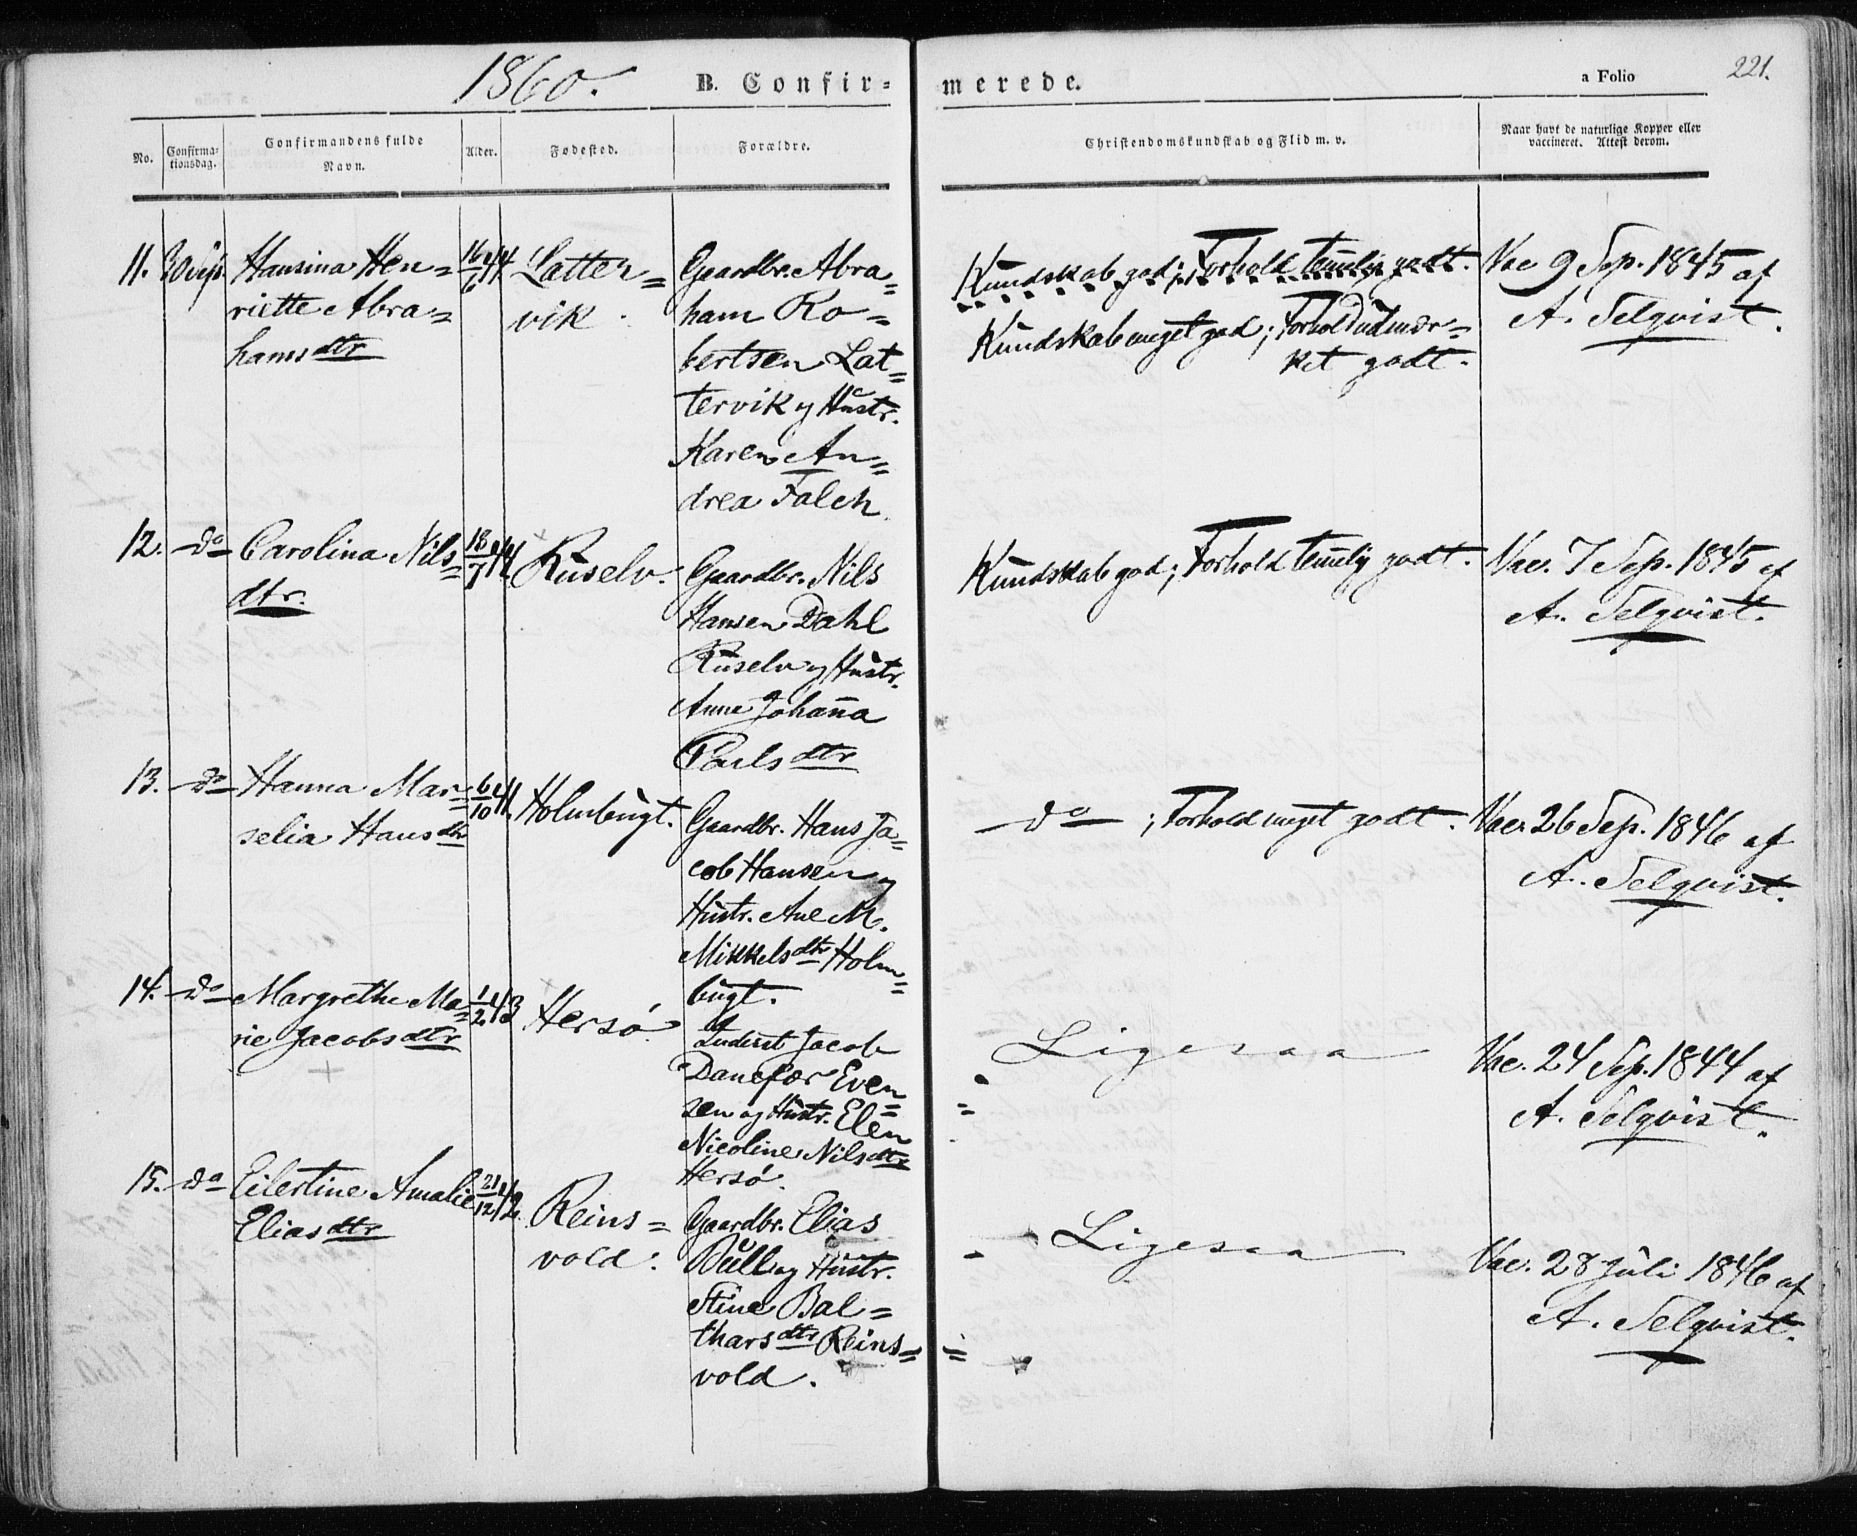 1860.
B. Confir=
merede.
a Folio
221.
No.
Confirma-
tionsdag.
Confirmandens fulde
Navn.
Alder.
Fødested.
Forældre.
Christendomskundskab og Flid m. v.
Naar havt de naturlige Kopper eller
vaccineret. Attest derom.
11. 30 Sep. Hansina Hen=
riette Abra=
hamsdtr
16/6 44
Latter=
vik.
Gaardbr. Abra=
ham Ro=
bertsen Lat=
tervik og Hustr.
Karen An=
drea Falch
Kundskab god; Forhold temlig godt.
Kundskab meget god; Forhold udmær=
ket godt.
Vac 9 Sep. 1845 af
A. Selqvist.
12. do Carolina Nils=
dtr.
18/7 44
Ruselv.
Gaardbr. Nils
Hansen Dahl
Ruselv og Hustr.
Anne Johaña
Poulsdtr
Kundskab god; Forhold temlig godt.
Vac. 7 Sep. 1845 af
A. Selqvist.
13. do Hanna Mar=
selia Hansdtr
6/10 44.
Holmbugt.
Gaardbr. Hans Ja=
cob Hansen og
Hustr. Ane M.
Mikkelsdtr Holm=
bugt.
do ; Forhold meget godt.
Vac. 26 Sep. 1846 af
A. Selqvist.
14. do Margrethe Ma=
rie Jacobsdtr
1/2 43
Hersø.
Inderst Jacob
Danefær Even=
sen og Hustr. Elen
Nicoline Nilsdtr
Hersø.
Ligesaa
Vac. 24 Sep. 1844 af
A. Selqvist.
15. do Eilertine Amalie
Eliasdtr
21/12 42.
Reins=
vold.
Gaardbr. Elias
Bull og Hustr.
Stine Bal=
tharsdtr Reins=
vold.
Ligesaa
Vac. 28 Juli 1846 af
A. Selqvist.